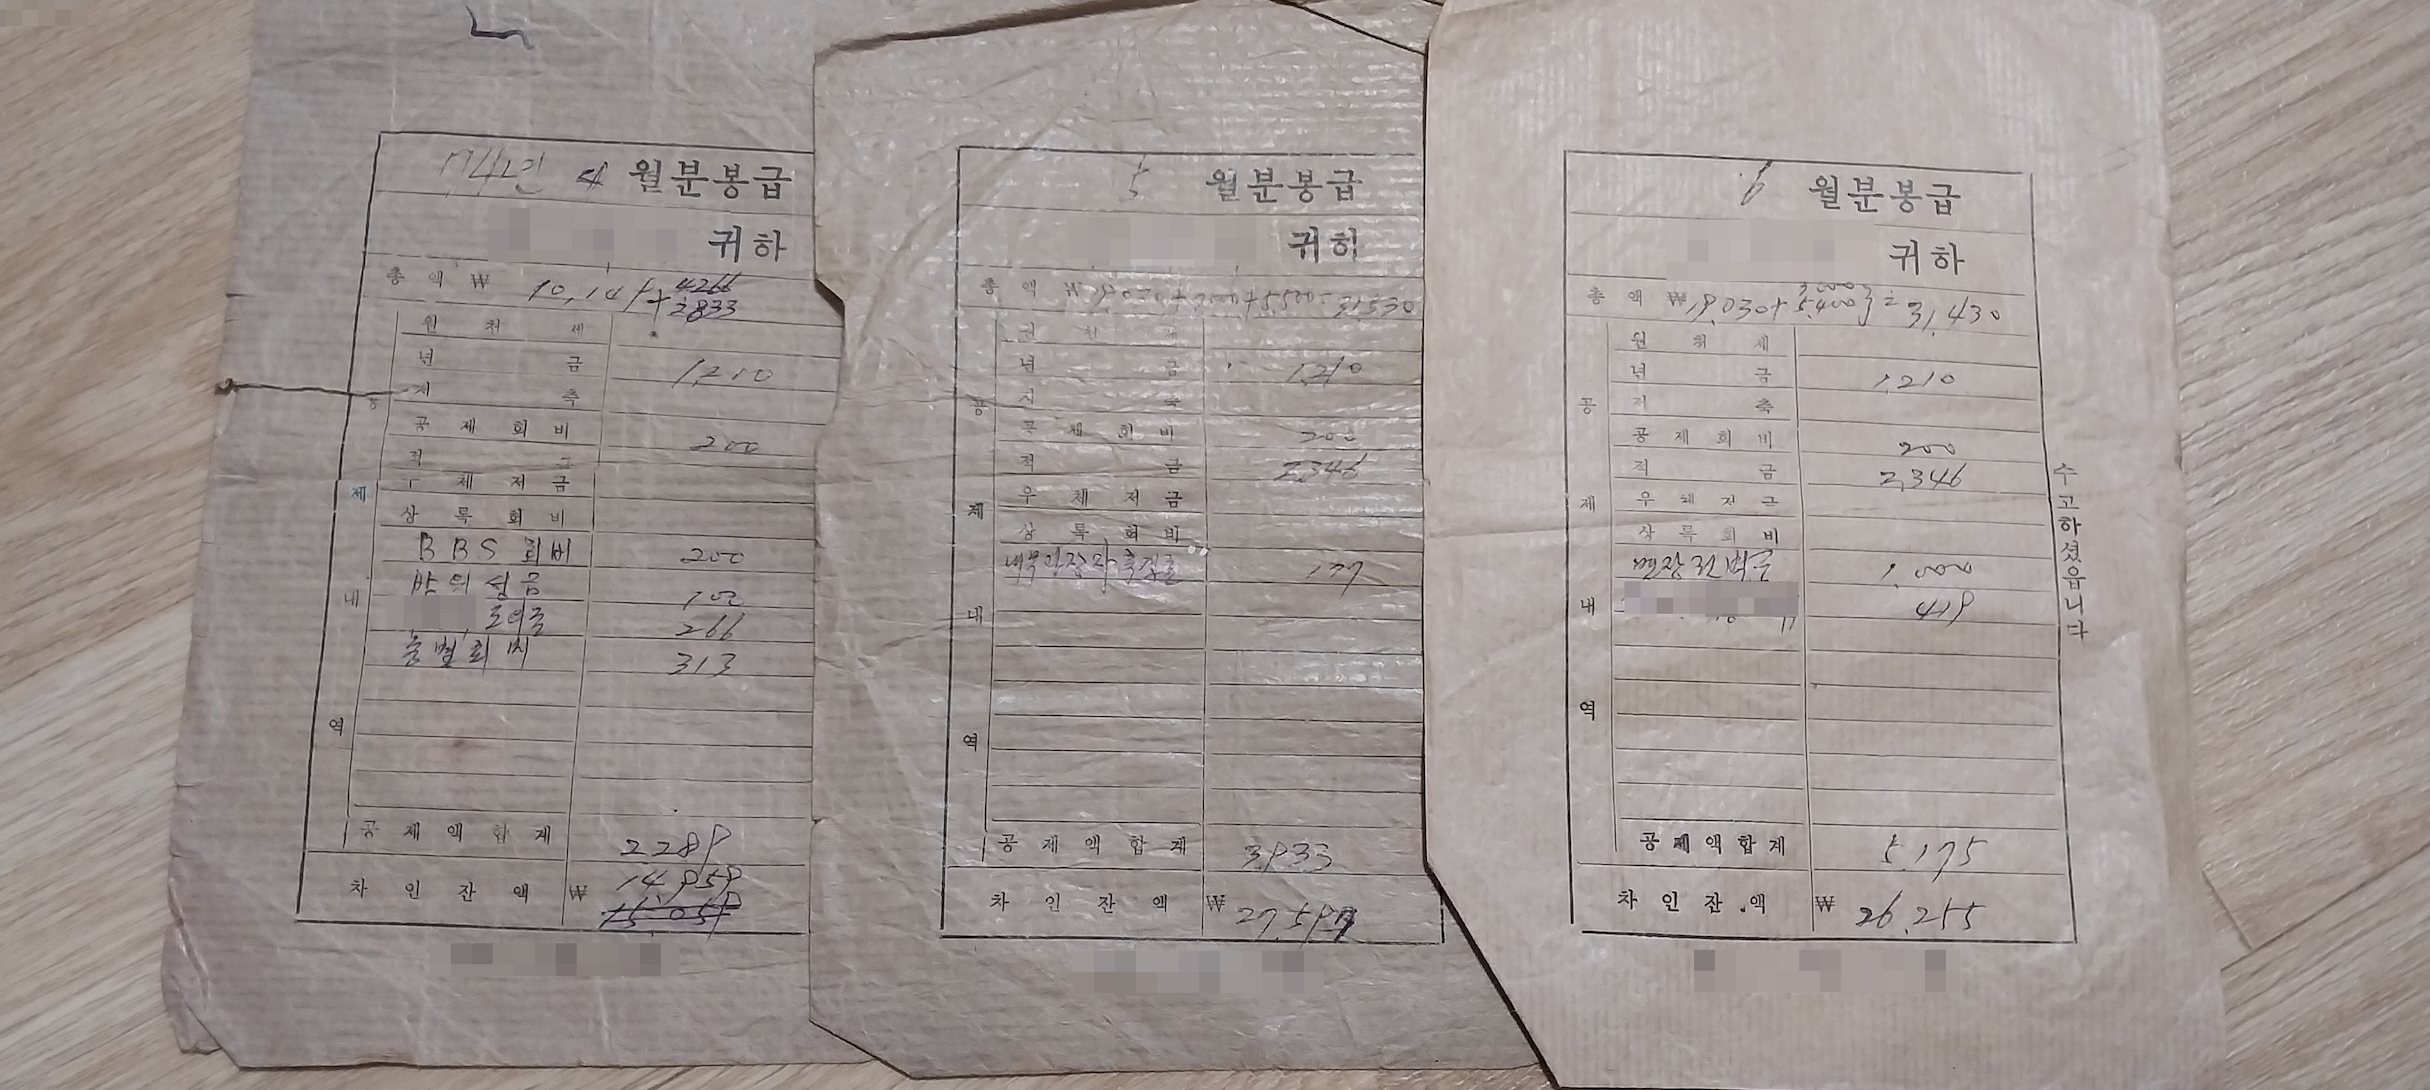 1974년 4 월분봉급
귀하
총액 ₩ 10,141 + 4266
2833
원천세
년금 1,210
저축
공제회비 200
적금
우체저금
상록회비
BBS 회비 200
방위성금 100
266
송별회비 313
공제내역
공제액합계 2289
차인잔액 ₩ 14,959
15.059
5 월분봉급
귀하
총액 ₩ 31530
원천세
년금 1,210
저축
공제회비 200
적금 2,346
우체저금
상록회비
177
공제내역
공제액합계 3,933
차인잔액 ₩ 27,597
6 월분봉급
귀하
총액 ₩ 19,030 + 5,400 } = 31,430
원천세
년금 1,210
저축
공제회비 200
적금 2,346
우체저금
상록회비
1,000
419
공제내역
공제액합계 5,175
차인잔액 ₩ 26,255
수고하셨읍니다